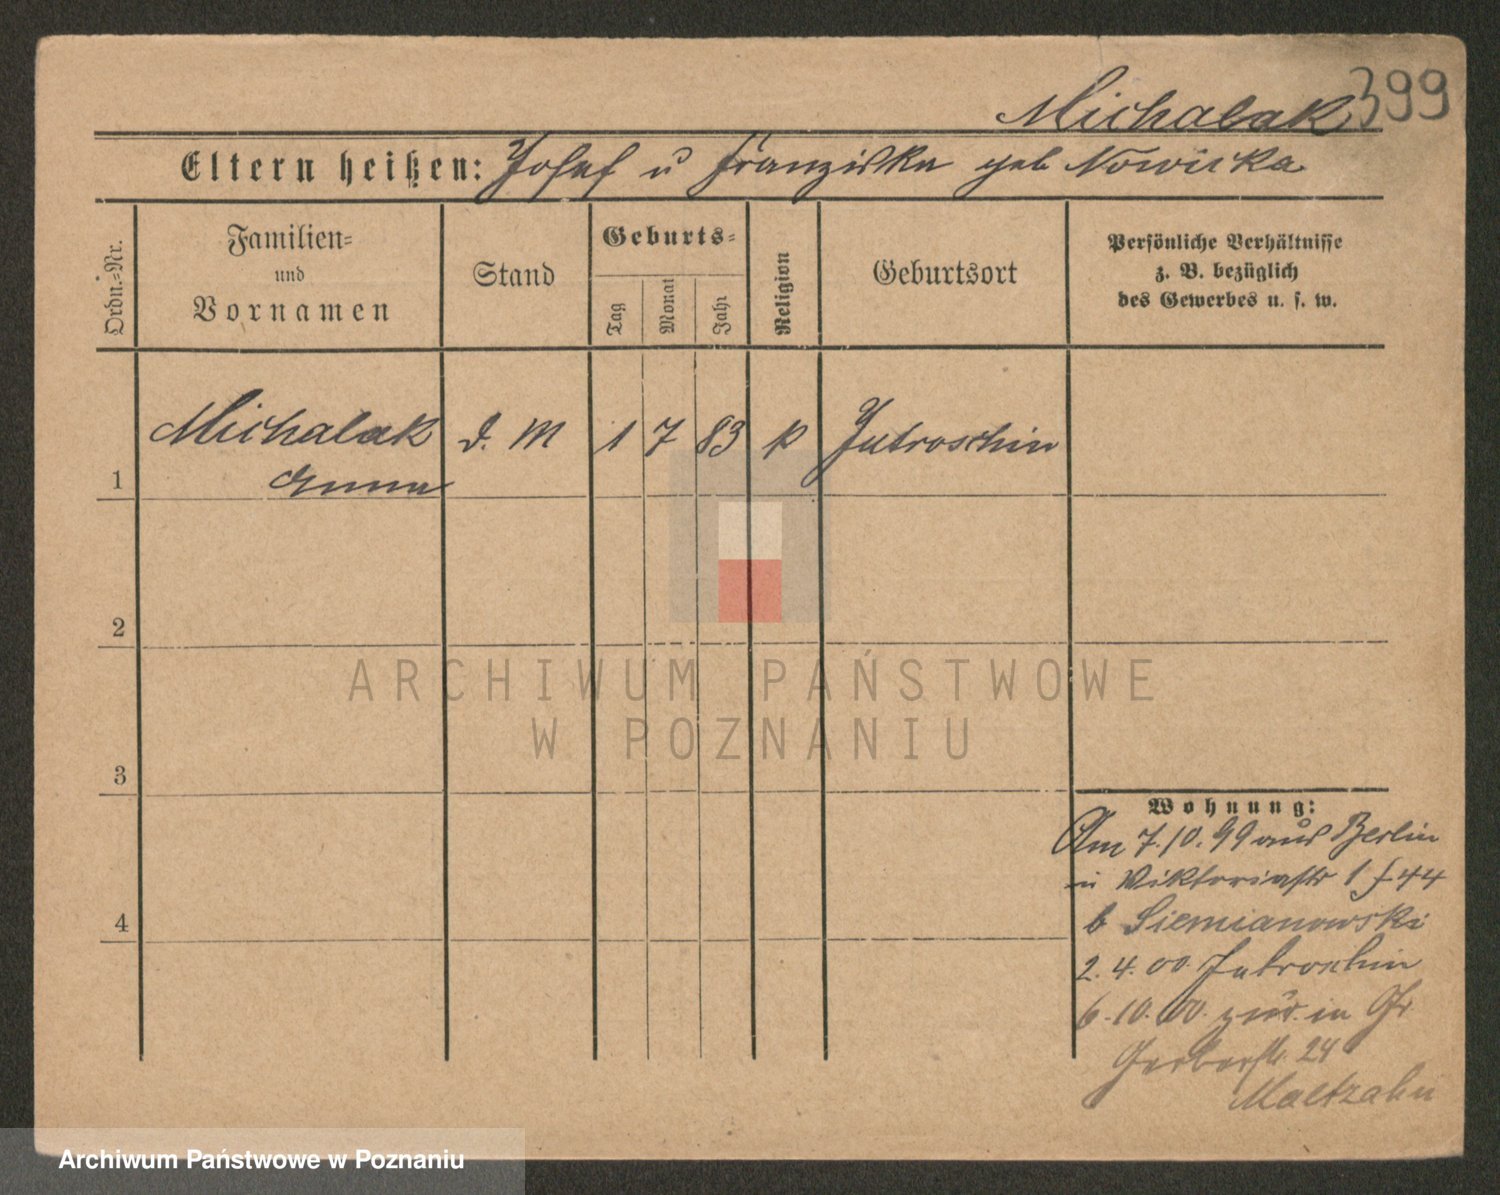 Michalak 399
Eltern heißen: Josef u Franziska geb Nowicka
Ordn.=Nr.
Familien=
und
Vornamen
Stand
Geburts=
Tag
Monat
Jahr
Religion
Geburtsort
Persönliche Verhältnisse
z. B. bezüglich
des Gewerbes u. s. w.
Michalak D. M 1 7 83 k Jutroschin
1 Anna
2
3
4
Wohnung:
Am 7.10.99 aus Berlin
in Viktoriastr 1 44
b Siemianowski
2.4.00 Jutroschin
6.10.00 zur. in Gr
Gerberstr. 24
Maltzahn
ARCHIWUM PAŃSTWOWE
W POZNANIU
Archiwum Państwowe w Poznaniu